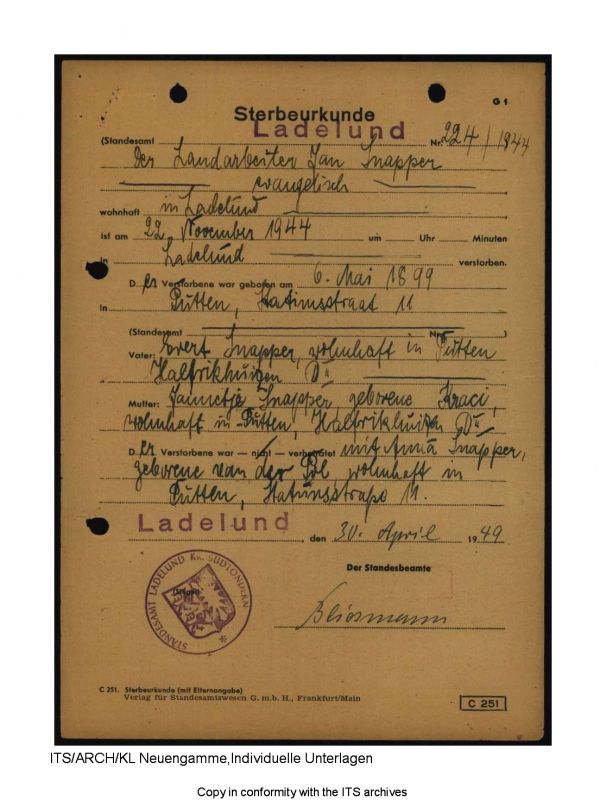 G 1
Sterbeurkunde
(Standesamt Ladelund Nr. 224/1944
Der Landarbeiter Jan Snapper
evangelisch
wohnhaft in Ladelund
ist am 22. November 1944 um Uhr Minuten
in Ladelund verstorben.
D er Verstorbene war geboren am 6. Mai 1899
in Putten, 11
(Standesamt Nr. )
Vater: Evert Snapper, wohnhaft in Putten
Halfrikhuizen
Mutter: Jannetje Snapper geborene
wohnhaft in Putten, Halfrikhuizen
D er Verstorbene war — nicht — verheiratet mit Anna Snapper,
geborene van der Pol wohnhaft in
Putten, 11.
Ladelund, den 30. April 1949
Der Standesbeamte
(Siegel)
STANDESAMT LADELUND KR. SÜDTONDERN
C 251. Sterbeurkunde (mit Elternangabe)
Verlag für Standesamtswesen G. m. b. H., Frankfurt/Main
C 251
ITS/ARCH/KL Neuengamme,Individuelle Unterlagen
Copy in conformity with the ITS archives